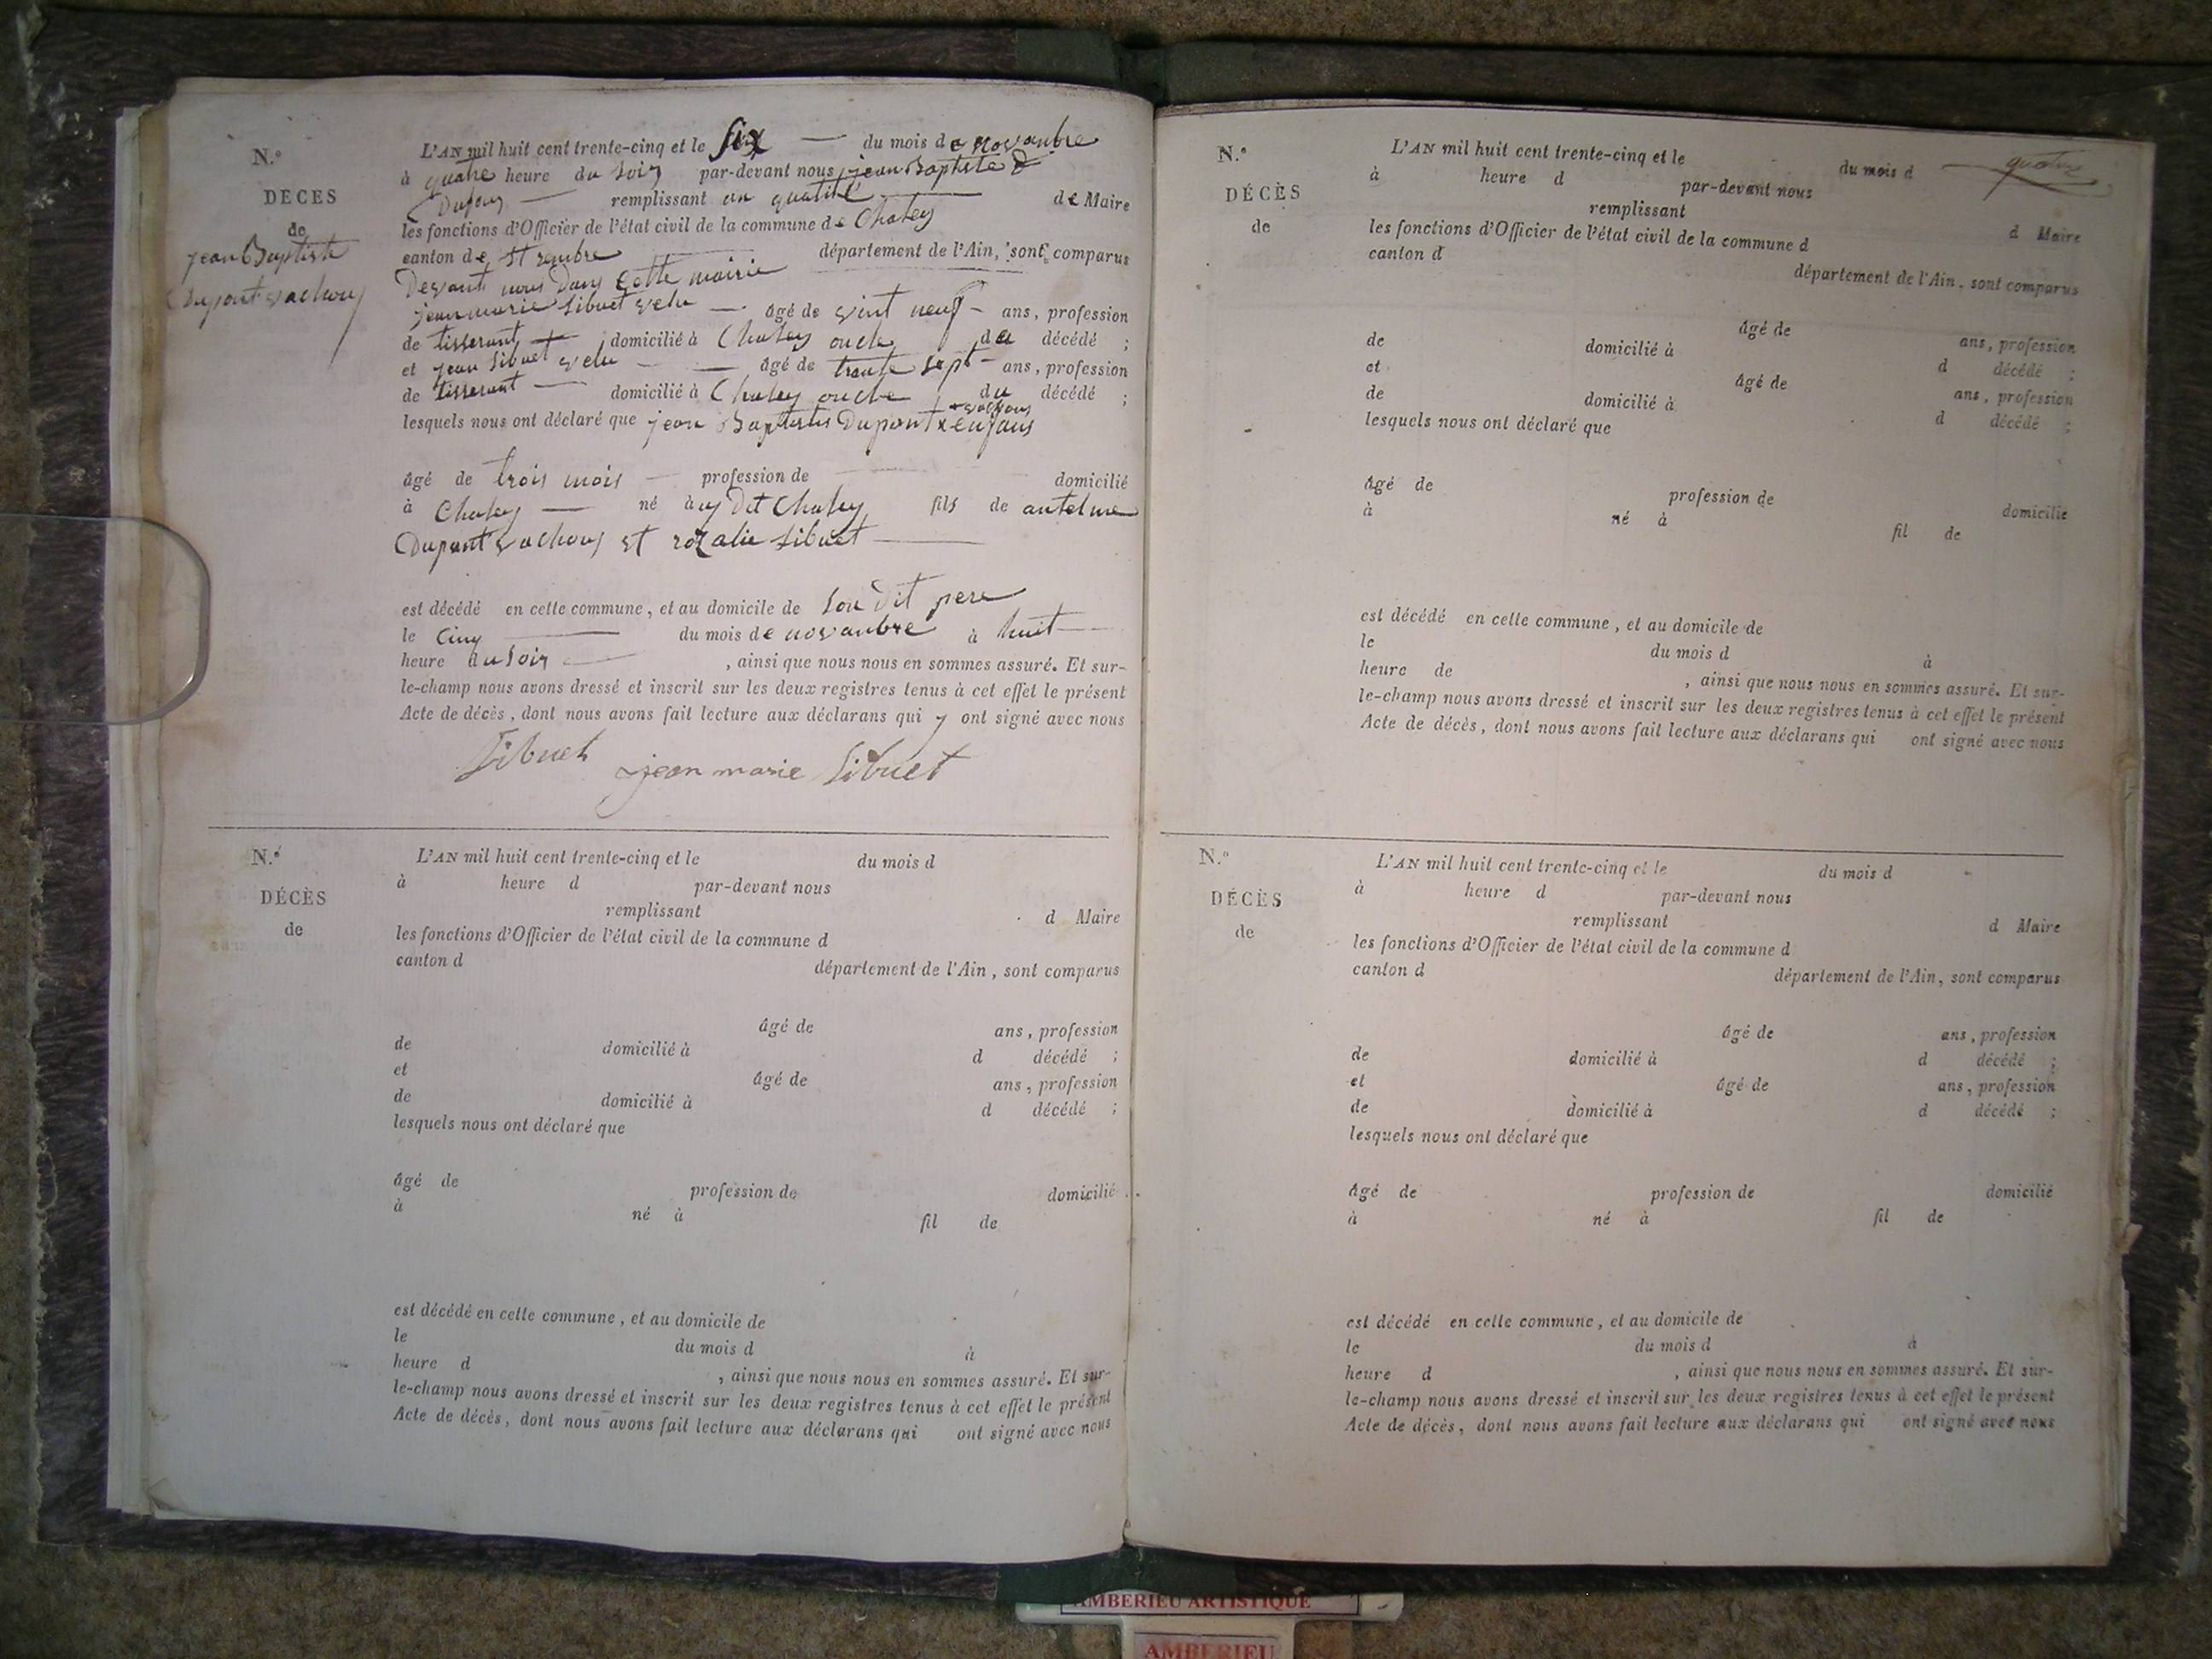 N.º
DÉCÈS
de
jean Baptiste
Dupont vachony
L'AN mil huit cent trente-cinq et le six du mois de novanbre
à quatre heure du soir par-devant nous jean Baptiste
Dufour remplissant an qualité de Maire
les fonctions d'Officier de l'état civil de la commune de Chaley
canton de st rembre département de l'Ain, sont comparus
Devant nous Dans Cette mairie
jean marie Sibuet velu âgé de vint neuf ans, profession
de tisserant domicilié à Chaley oncle du décédé ;
et jean Sibuet velu âgé de trante sept ans, profession
de tisserant domicilié à Chaley oncle du décédé ;
lesquels nous ont déclaré que jean Baptiste Dupont enfans
âgé de trois mois profession de domicilié
à Chaley né à Dit Chaley fils de antelme
Dupont vachony et rozalie Sibuet
est décédé en cette commune, et au domicile de son Dit pere
le Cinq du mois de novanbre à huit
heure du soir , ainsi que nous nous en sommes assuré. Et sur-
le-champ nous avons dressé et inscrit sur les deux registres tenus à cet effet le présent
Acte de décès, dont nous avons fait lecture aux déclarans qui y ont signé avec nous
Sibuet jean marie Sibuet
N.º
DÉCÈS
de
L'AN mil huit cent trente-cinq et le du mois d
à heure d par-devant nous
remplissant d Maire
les fonctions d'Officier de l'état civil de la commune d
canton d département de l'Ain, sont comparus
âgé de ans, profession
de domicilié à d décédé ;
et âgé de ans, profession
de domicilié à d décédé ;
lesquels nous ont déclaré que
âgé de profession de domicilié
à né à fil de
est décédé en cette commune, et au domicile de
le du mois d à
heure d , ainsi que nous nous en sommes assuré. Et sur-
le-champ nous avons dressé et inscrit sur les deux registres tenus à cet effet le présent
Acte de décès, dont nous avons fait lecture aux déclarans qui ont signé avec nous
N.º
DÉCÈS
de
L'AN mil huit cent trente-cinq et le du mois d
à heure d par-devant nous
remplissant d Maire
les fonctions d'Officier de l'état civil de la commune d
canton d département de l'Ain, sont comparus
âgé de ans, profession
de domicilié à d décédé ;
et âgé de ans, profession
de domicilié à d décédé ;
lesquels nous ont déclaré que
âgé de profession de domicilié
à né à fil de
est décédé en cette commune, et au domicile de
le du mois d à
heure de , ainsi que nous nous en sommes assuré. Et sur-
le-champ nous avons dressé et inscrit sur les deux registres tenus à cet effet le présent
Acte de décès, dont nous avons fait lecture aux déclarans qui ont signé avec nous
N.º
DÉCÈS
de
L'AN mil huit cent trente-cinq et le du mois d
à heure d par-devant nous
remplissant d Maire
les fonctions d'Officier de l'état civil de la commune d
canton d département de l'Ain, sont comparus
âgé de ans, profession
de domicilié à d décédé ;
et âgé de ans, profession
de domicilié à d décédé ;
lesquels nous ont déclaré que
âgé de profession de domicilié
à né à fil de
est décédé en cette commune, et au domicile de
le du mois d à
heure d , ainsi que nous nous en sommes assuré. Et sur-
le-champ nous avons dressé et inscrit sur les deux registres tenus à cet effet le présent
Acte de décès, dont nous avons fait lecture aux déclarans qui ont signé avec nous
AMBERIEU ARTISTIQUE
AMBERIEU